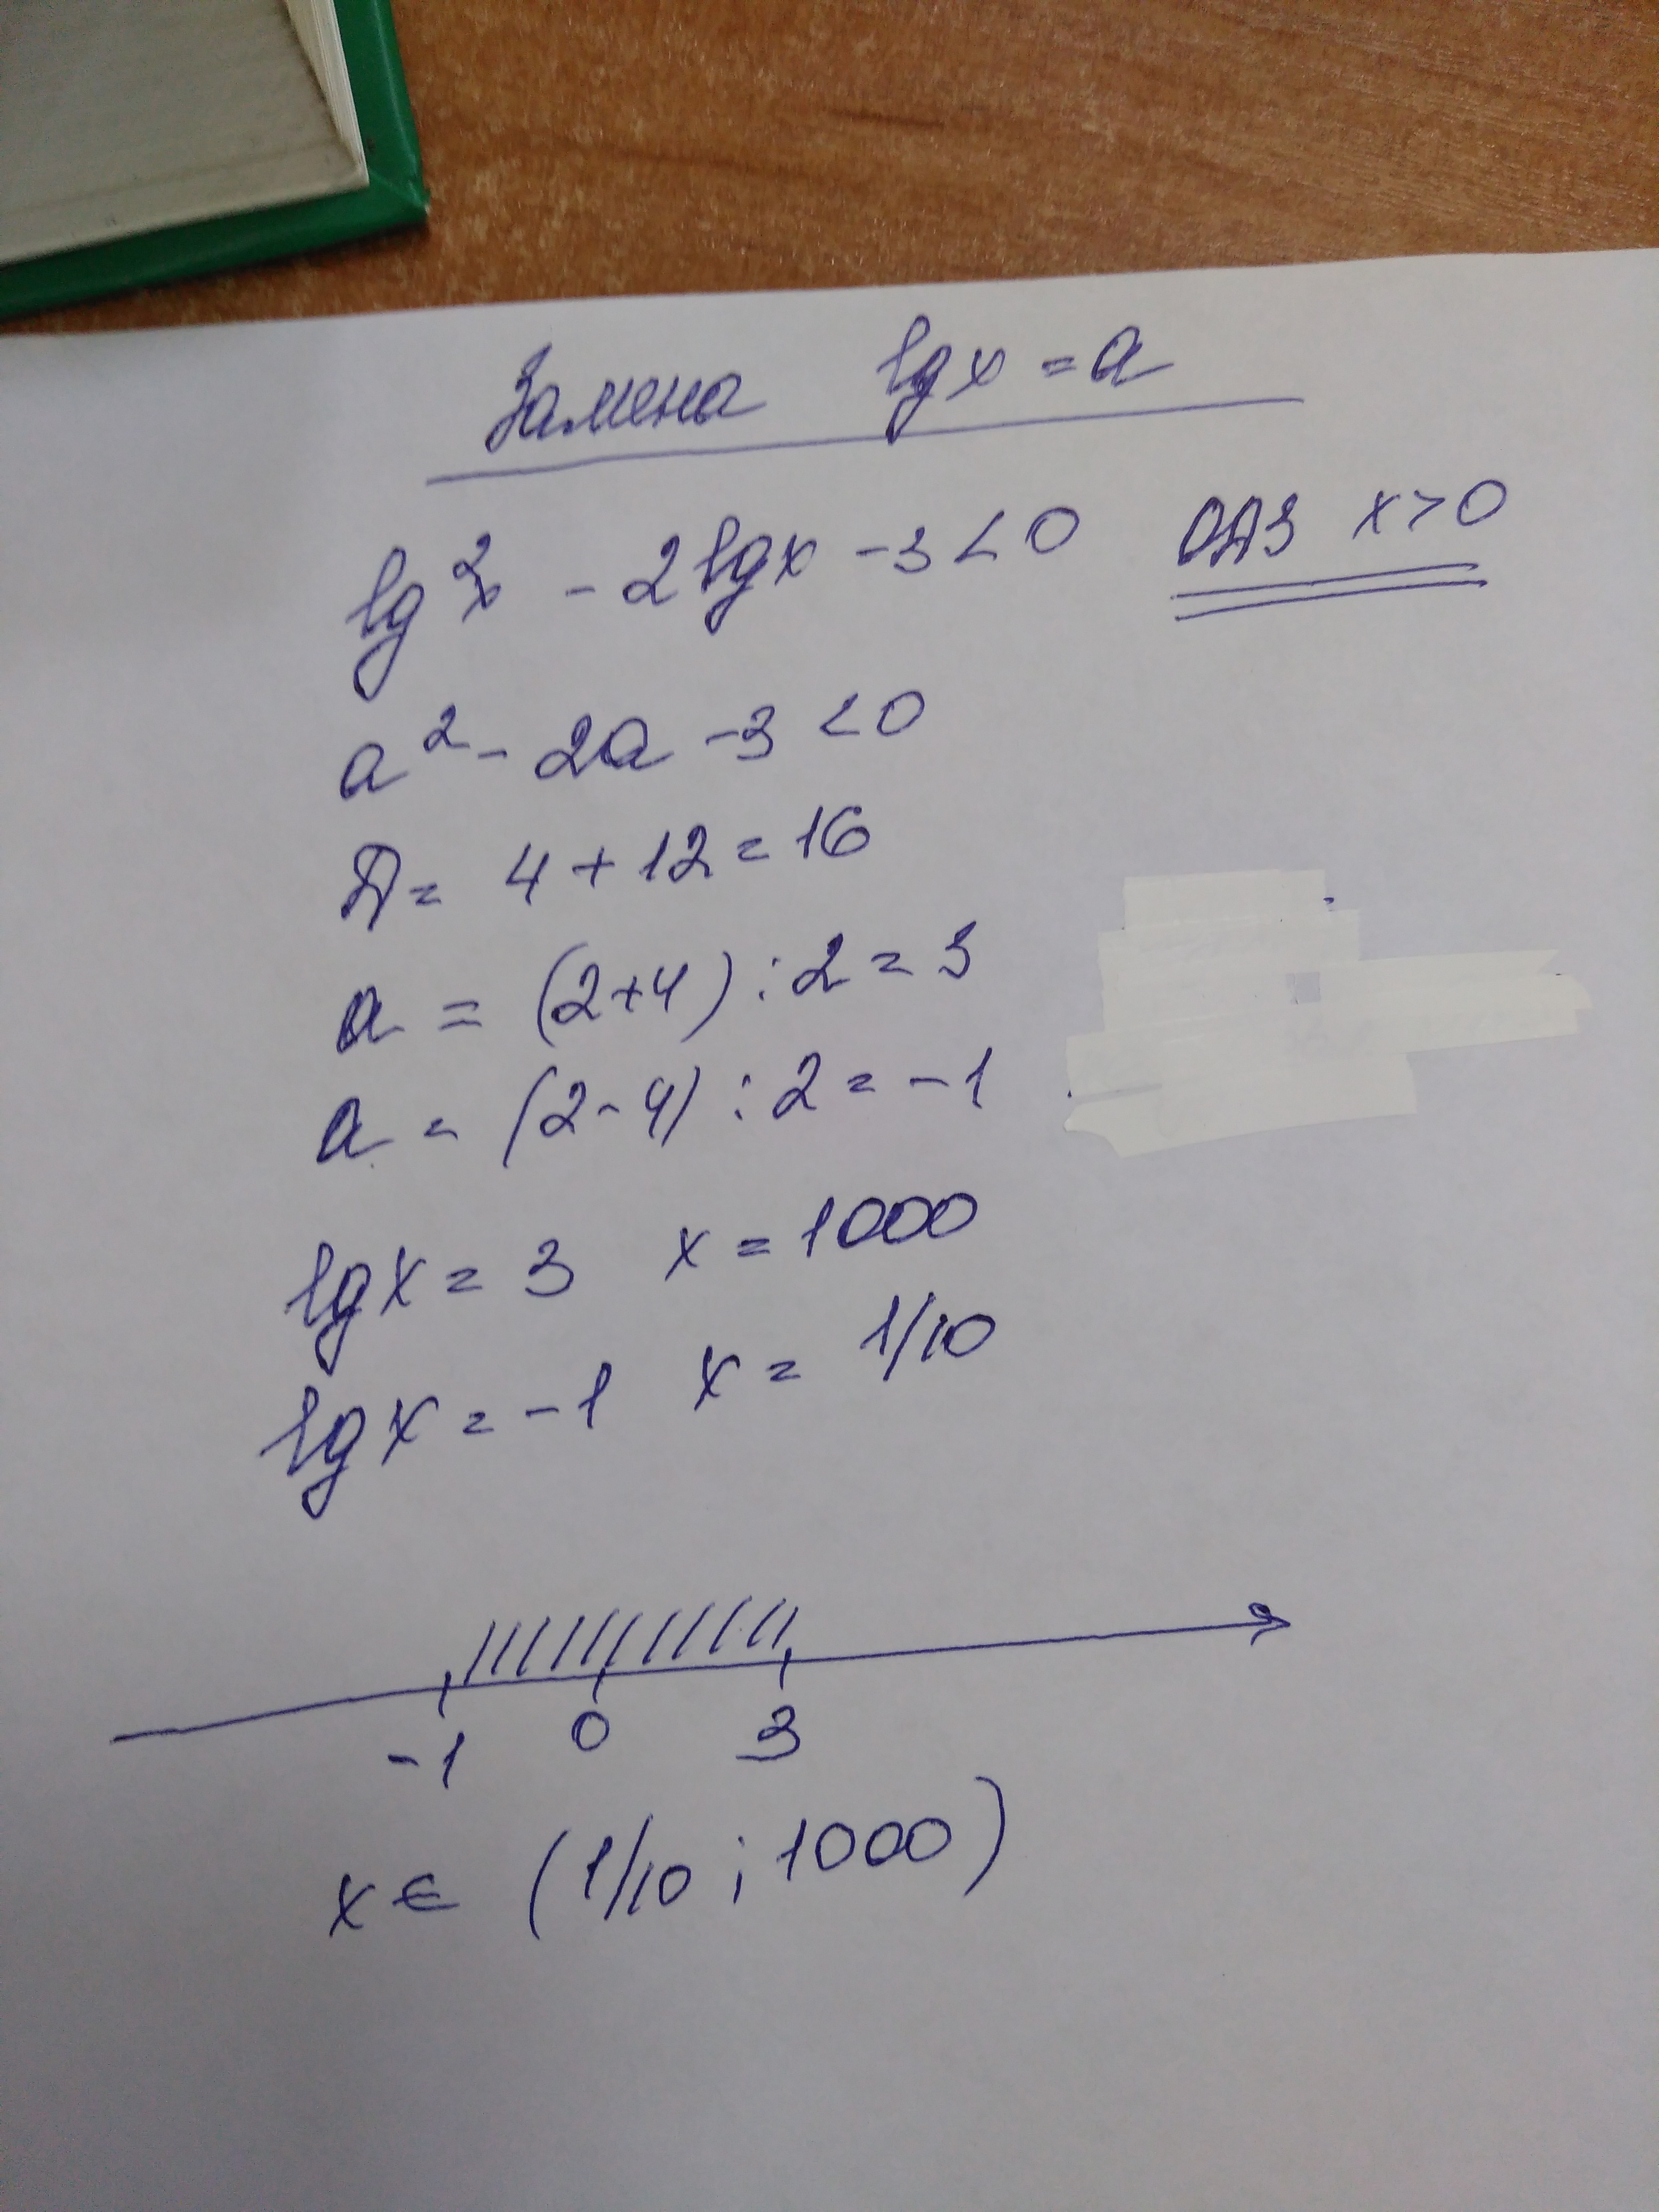 Замена lgx = a
lg²x - 2lgx - 3 < 0 ОДЗ x > 0
a² - 2a - 3 < 0
D = 4 + 12 = 16
a = (2+4) : 2 = 3
a = (2-4) : 2 = -1
lgx = 3 x = 1000
lgx = -1 x = 1/10
-1 0 3
x ∈ (1/10 ; 1000)